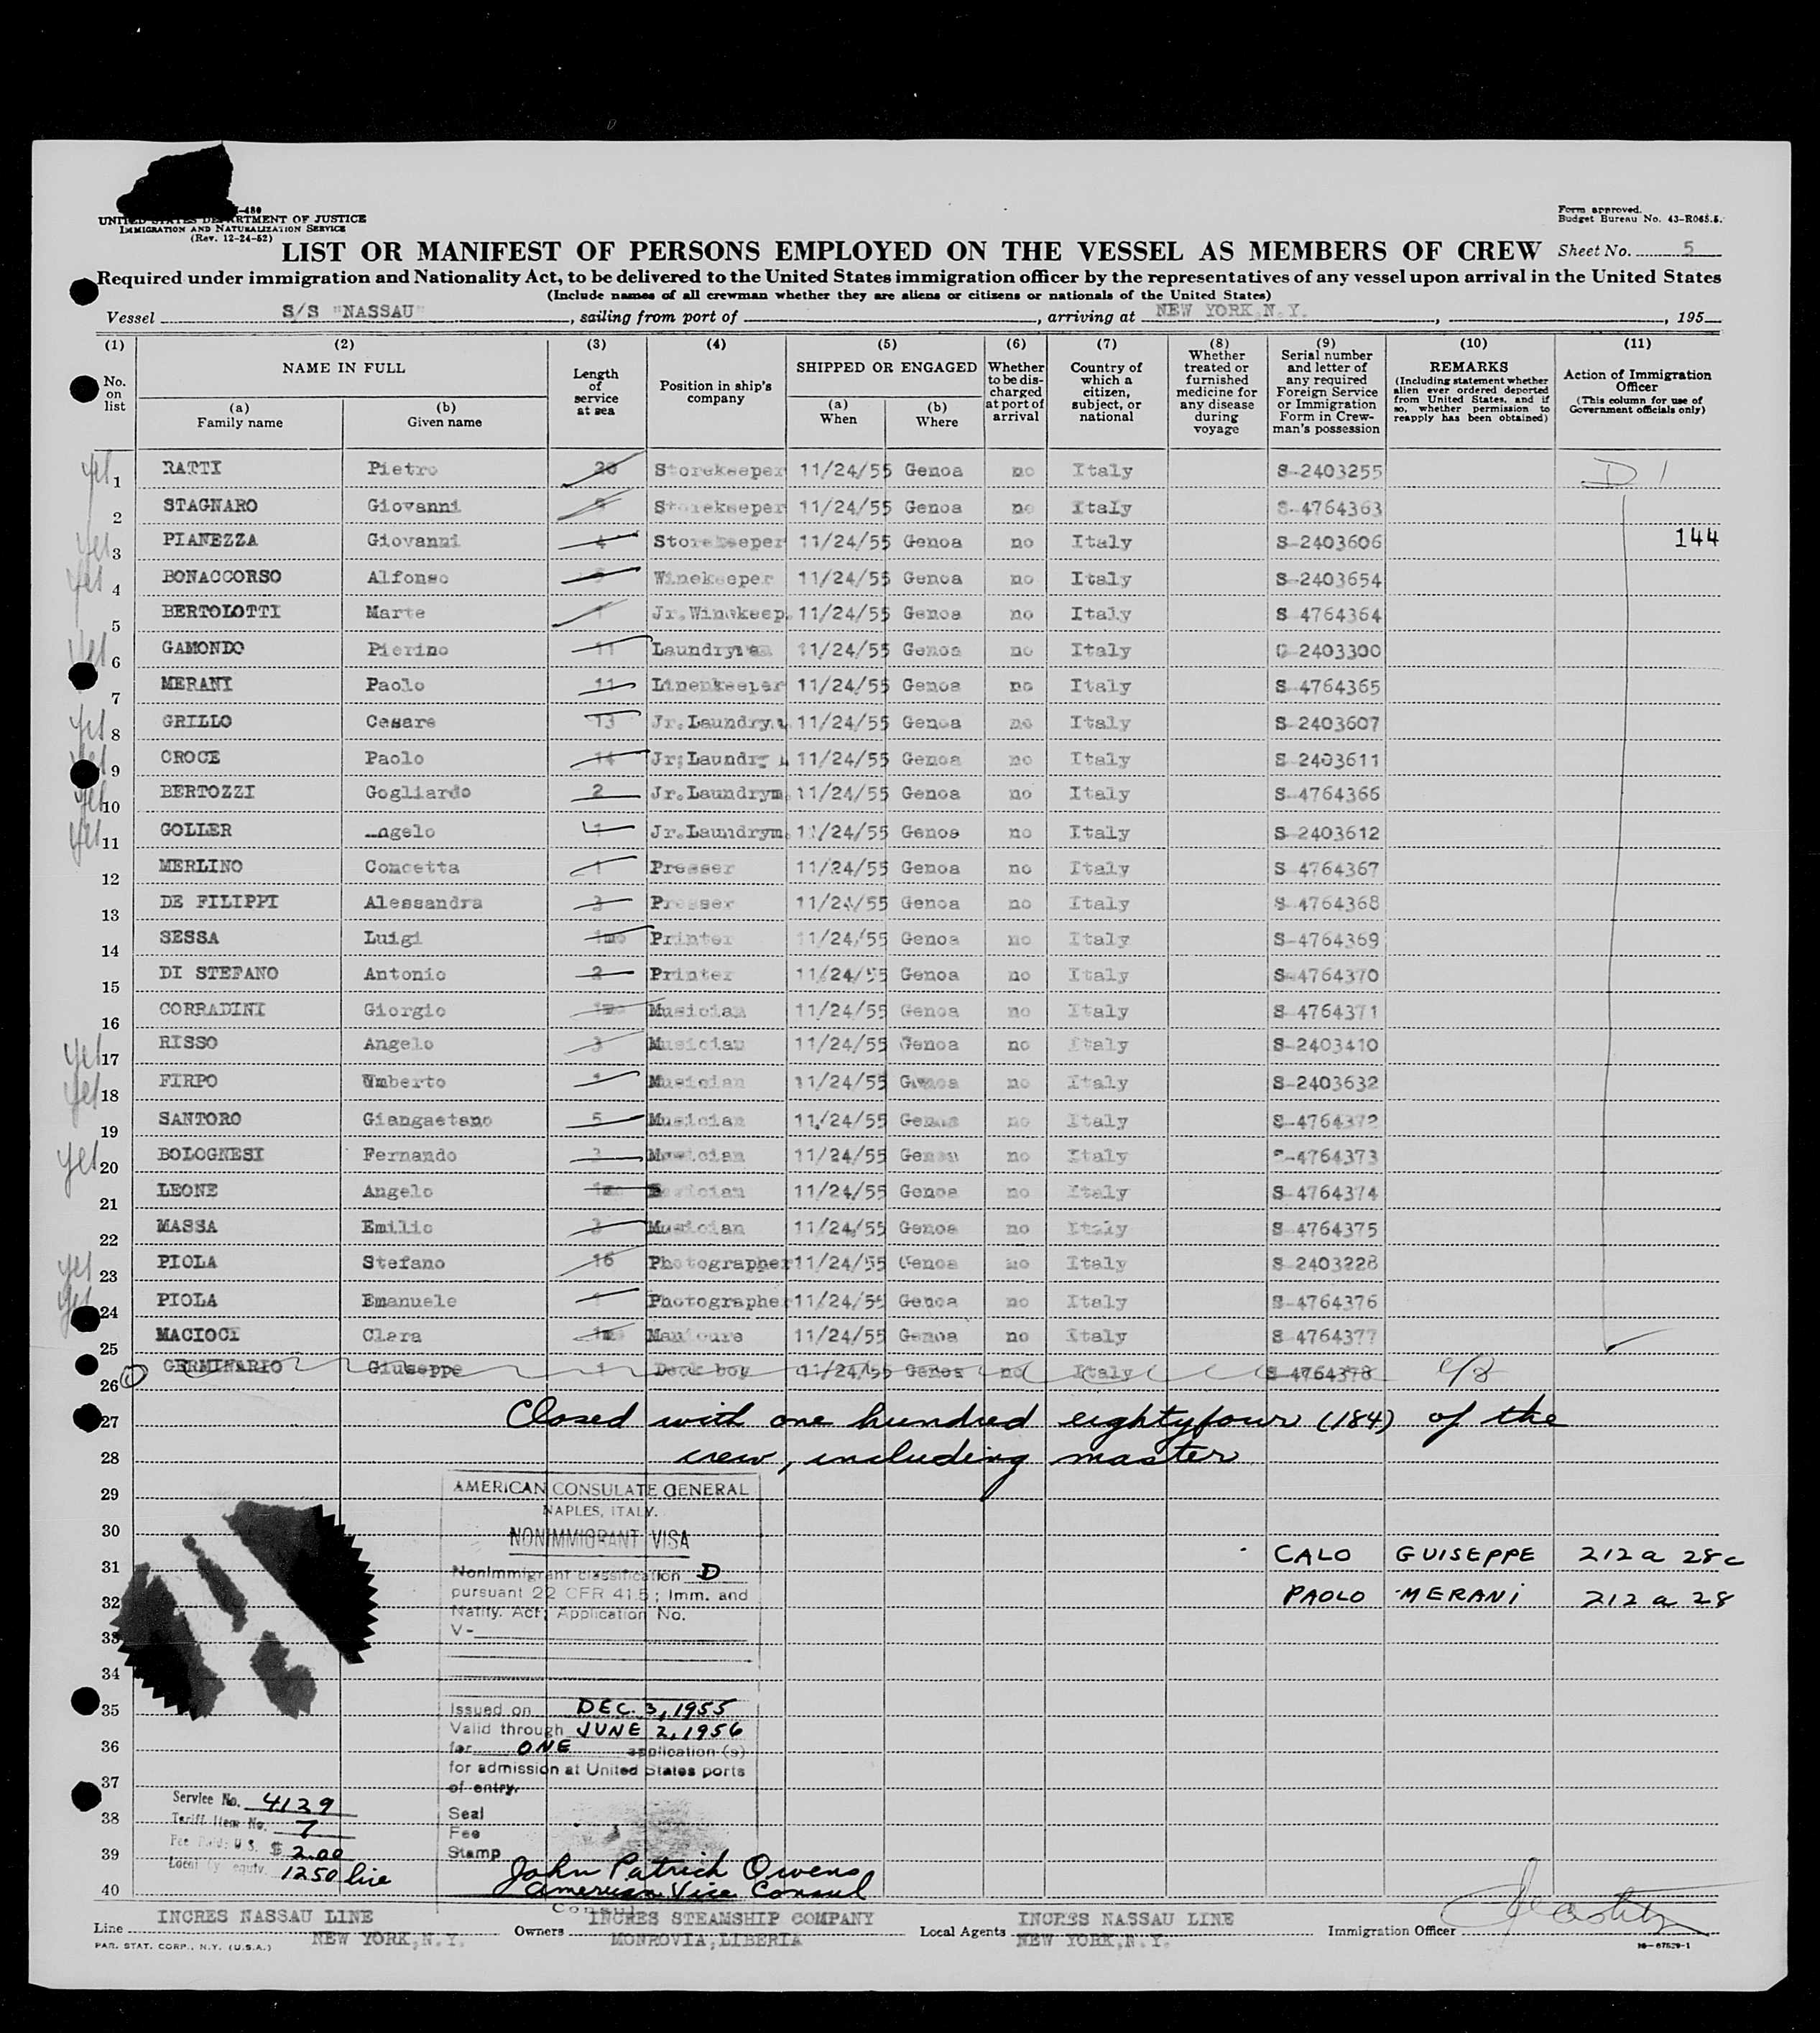 -480
UNITED STATES DEPARTMENT OF JUSTICE
IMMIGRATION AND NATURALIZATION SERVICE
(Rev. 12-24-52)
Form approved.
Budget Bureau No. 43-R065.5.
LIST OR MANIFEST OF PERSONS EMPLOYED ON THE VESSEL AS MEMBERS OF CREW Sheet No. 5
Required under immigration and Nationality Act, to be delivered to the United States immigration officer by the representatives of any vessel upon arrival in the United States
(Include names of all crewman whether they are aliens or citizens or nationals of the United States)
Vessel S/S "NASSAU", sailing from port of , arriving at NEW YORK, N.Y. , , 195
(1) (2) (3) (4) (5) (6) (7) (8) (9) (10) (11)
No. on list
NAME IN FULL
(a) Family name
(b) Given name
Length of service at sea
Position in ship's company
SHIPPED OR ENGAGED
(a) When
(b) Where
Whether to be discharged at port of arrival
Country of which a citizen, subject, or national
Whether treated or furnished medicine for any disease during voyage
Serial number and letter of any required Foreign Service or Immigration Form in Crewman's possession
REMARKS
(Including statement whether alien ever ordered deported from United States, and if so, whether permission to reapply has been obtained)
Action of Immigration Officer
(This column for use of Government officials only)
yes 1 RATTI Pietro 20 Storekeeper 11/24/55 Genoa no Italy S-2403255 D 1
2 STAGNARO Giovanni Storekeeper 11/24/55 Genoa no Italy S-4764363
yes 3 PIANEZZA Giovanni 4 Storekeeper 11/24/55 Genoa no Italy S-2403606 144
yes 4 BONACCORSO Alfonso Winekeeper 11/24/55 Genoa no Italy S-2403654
5 BERTOLOTTI Marte 1 Jr.Winekeep. 11/24/55 Genoa no Italy S 4764364
yes 6 GAMONDO Pierino 11 Laundryman 11/24/55 Genoa no Italy 2403300
7 MERANI Paolo 11 Linenkeeper 11/24/55 Genoa no Italy S-4764365
yes 8 GRILLO Cesare 13 Jr.Laundry. 11/24/55 Genoa no Italy S-2403607
yes 9 CROCE Paolo 14 Jr.Laundry 11/24/55 Genoa no Italy S 2403611
yes 10 BERTOZZI Gogliardo 2 Jr.Laundrym. 11/24/55 Genoa no Italy S-4764366
yes 11 GOLLER Angelo 1 Jr.Laundrym. 11/24/55 Genoa no Italy S-2403612
12 MERLINO Concetta 1 Presser 11/24/55 Genoa no Italy S 4764367
13 DE FILIPPI Alessandra 3 Presser 11/24/55 Genoa no Italy S-4764368
14 SESSA Luigi 1mo Printer 11/24/55 Genoa no Italy S-4764369
15 DI STEFANO Antonio 2 Printer 11/24/55 Genoa no Italy S-4764370
16 CORRADINI Giorgio Musician 11/24/55 Genoa no Italy S-4764371
yes 17 RISSO Angelo 3 Musician 11/24/55 Genoa no Italy S-2403410
yes 18 FIRPO Umberto Musician 11/24/55 Genoa no Italy S-2403632
19 SANTORO Giangaetano 5 Musician 11/24/55 Genoa no Italy S-4764372
yes 20 BOLOGNESI Fernando Musician 11/24/55 Genoa no Italy -4764373
21 LEONE Angelo Musician 11/24/55 Genoa no Italy S-4764374
22 MASSA Emilio 3 Musician 11/24/55 Genoa no Italy S-4764375
yes 23 PIOLA Stefano 16 Photographer 11/24/55 Genoa no Italy S-2403228
yes 24 PIOLA Emanuele Photographer 11/24/55 Genoa no Italy S-4764376
25 MACIOCI Clara Manicure 11/24/55 Genoa no Italy S 4764377
26 GERMINARIO Giuseppe 1 Deck boy 11/24/55 Genoa no Italy S 4764378
27 Closed with one hundred eightyfour (184) of the
28 crew, including master
29
AMERICAN CONSULATE GENERAL
NAPLES, ITALY.
30
NONIMMIGRANT VISA
CALO GUISEPPE 212 a 28c
31
Nonimmigrant classification D
pursuant 22 CFR 41.5; Imm. and
PAOLO MERANI 212 a 28
32
Natlty. Act; Application No.
V-
33
34
35
Issued on DEC. 3, 1955
Valid through JUNE 2, 1956
36
for ONE application (s)
for admission at United States ports
37
of entry.
Service No. 4129
Seal
38
Tariff Item No. 7
Fee
Fee Paid: U.S. $ 2.00
39
Stamp
Local Cy equiv. 1250 lire
John Patrick Owens
40
American Vice Consul
Consul
Line INCRES NASSAU LINE
NEW YORK, N.Y.
Owners INCRES STEAMSHIP COMPANY
MONROVIA, LIBERIA
Local Agents INCRES NASSAU LINE
NEW YORK, N.Y.
Immigration Officer
PAR. STAT. CORP., N.Y. (U.S.A.)
16-67529-1